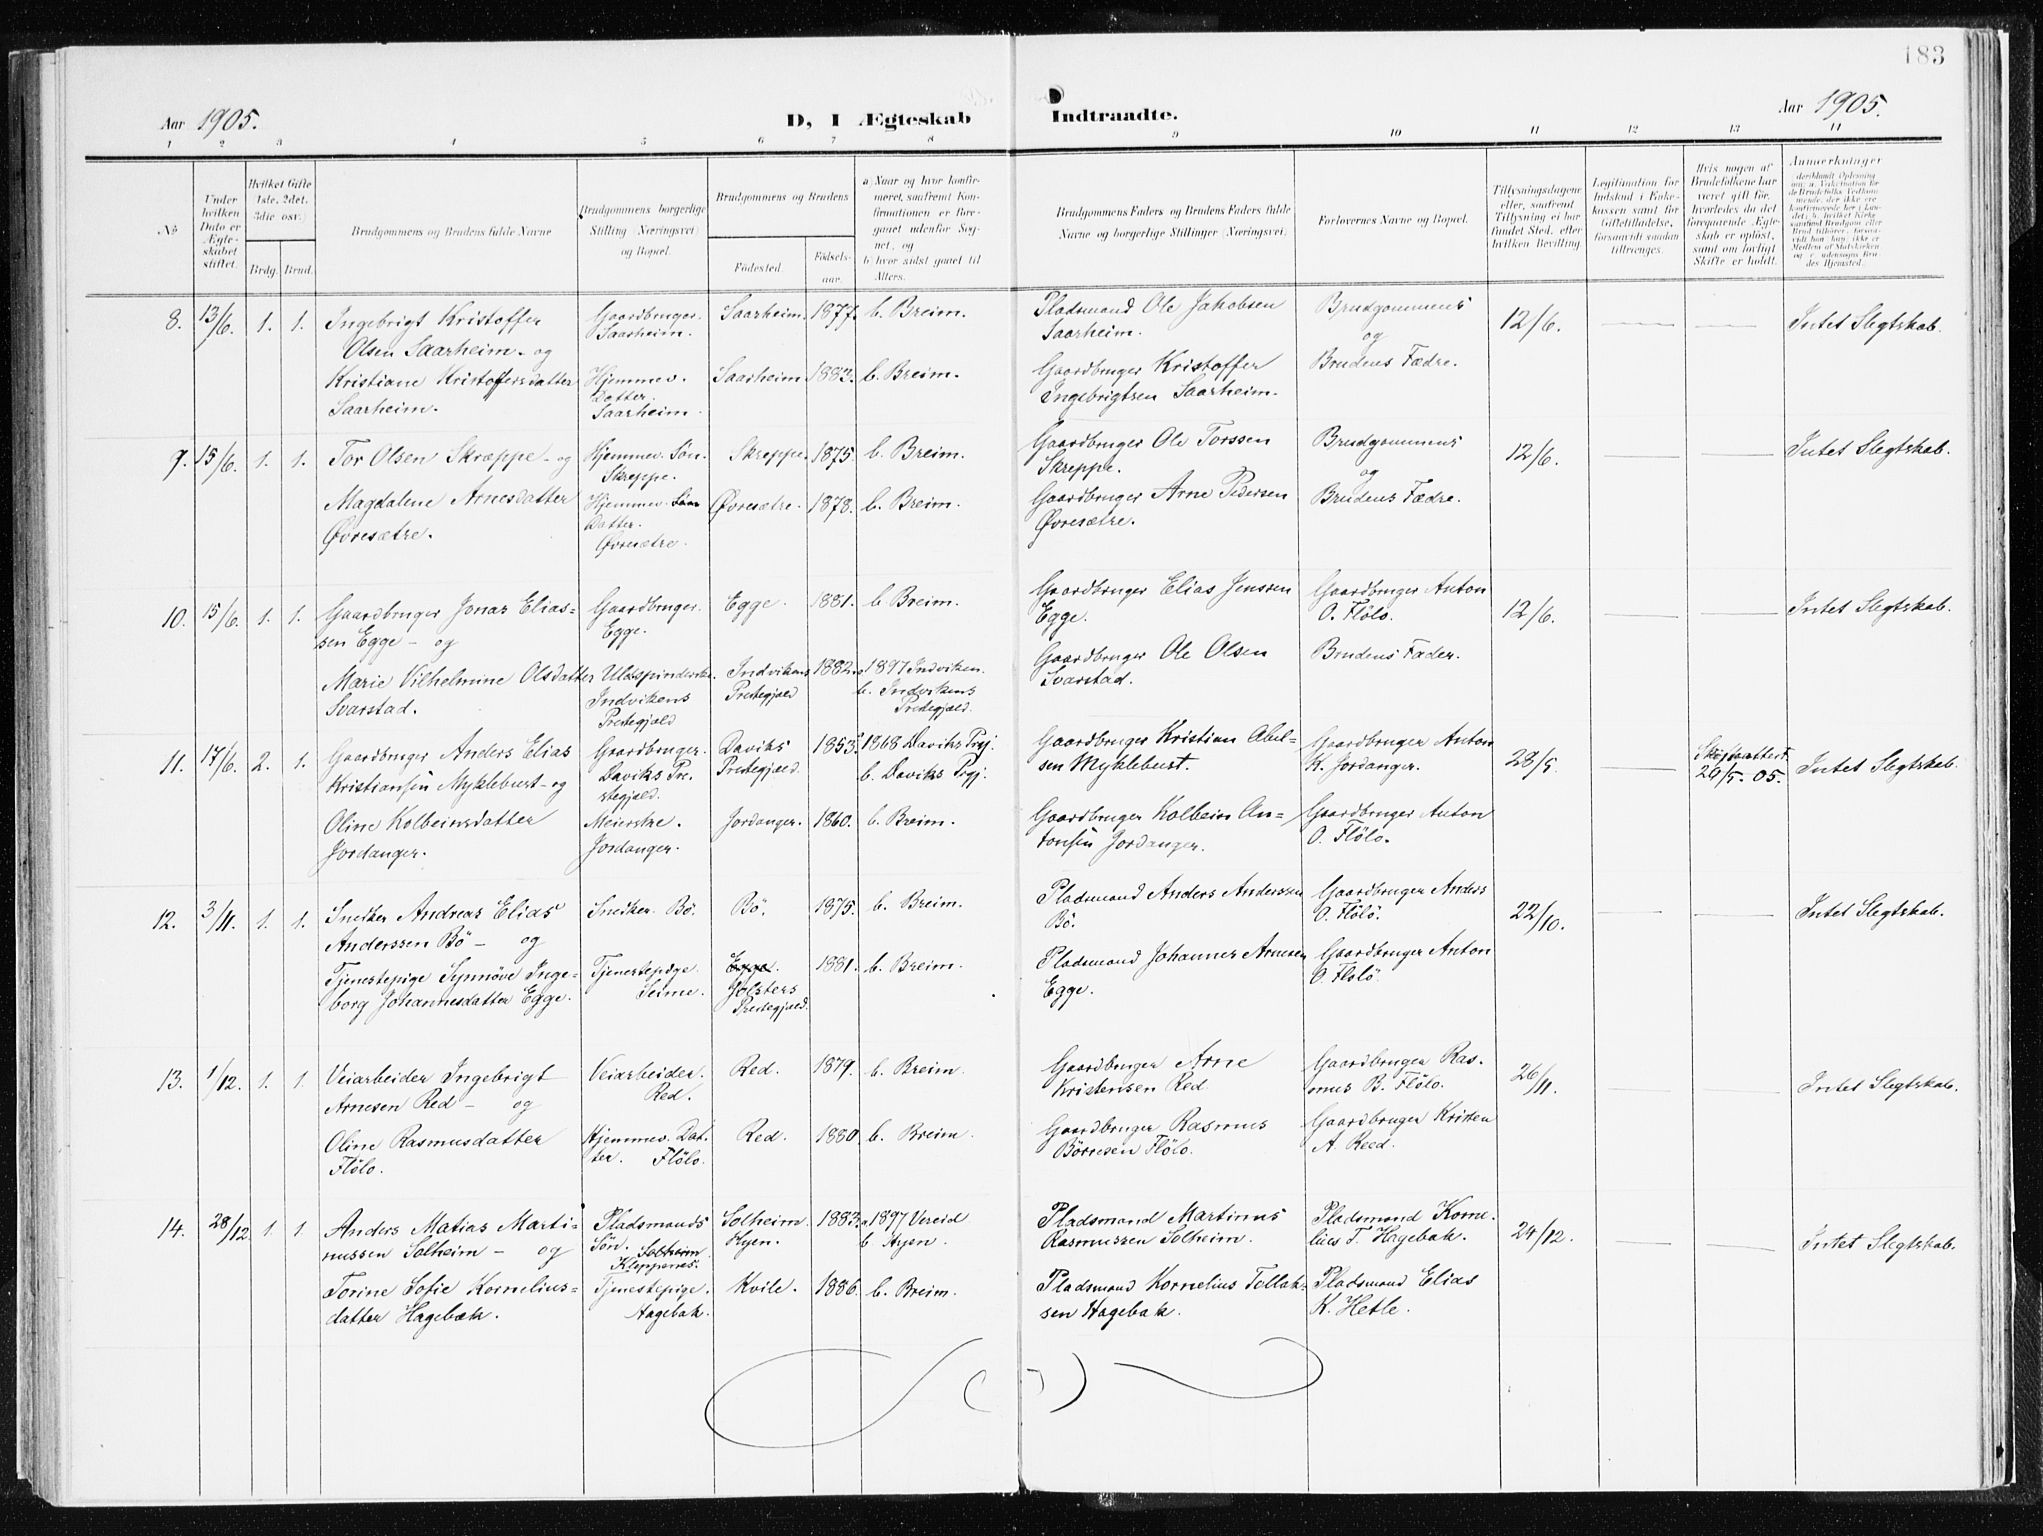 183
Aar 1905.
D, I Ægteskab Indtraadte.
Aar 1905.
1 2 3 4 5 6 7 8 9 10 11 12 13 14
No
Under hvilken Dato er Ægteskabet stiftet.
Hvilket Gifte 1ste, 2det, 3die osv.)
Brdg. Brud.
Brudgommens og Brudens fulde Navne
Brudgommens borgerlige Stilling (Næringsvei) og Bopæl.
Brudgommens og Brudens
Fødested.
Fødselsaar.
a) Naar og hvor konfirmeret, saafremt Konfirmationen er foregaaet udenfor Sognet, og
b) hvor sidst gaaet til Alters.
Brudgommens Faders og Brudens Faders fulde Navne og borgerlige Stillinger (Næringsvei).
Forlovernes Navne og Bopæl.
Tillysningsdagene eller, saafremt Tillysning ei har fundet Sted, efter hvilken Bevilling.
Legitimation for Indskud i Enkekassen samt for Giftetilladelse, forsaavidt saadan tiltrænges.
Hvis nogen af Brudefolkene har været gift før, hvorledes da det foregaaende Ægteskab er opløst, samt om lovligt Skifte er holdt.
Anmerkninger
8. 13/6. 1. 1. Ingebrigt Kristoffer Gaardbruger. Saarheim. 1877. b. Breim. Pladsmand Ole Jakobsen Brudgommens 12/6. Intet Slegtskab.
Olsen Saarheim. og Saarheim. Saarheim. og
Kristiane Kristoffersdatter Hjemmev. Saarheim 1883. b. Breim. Gaardbruger Kristoffer Brudens Fædre.
Saarheim. Datter. Saarheim. Ingebrigtsen Saarheim.
9. 15/6. 1. 1. Tor Olsen Skræppe - og Hjemmev. Søn. Skreppe. 1875. b. Breim. Gaardbruger Ole Torssen Brudgommens 12/6. Intet Slegtskab.
Skreppe. Skreppe. og
Magdalene Arnesdatter Hjemmev. Søn Øvresætre. 1878. b. Breim. Gaardbruger Arne Pedersen Brudens Fædre.
Øvresætre. Datter. Øvresætre. Øvresætre.
10. 15/6. 1. 1. Gaardbruger Jonas Elias= Gaardbruger. Egge. 1881. b. Breim. Gaardbruger Elias Jenssen Gaardbruger Anton 12/6. Intet Slegtskab.
sen Egge - og Egge. Egge. O. Flölo.
Marie Vilhelmine Olsdatter Uldspinderske. Indvikens 1882. a. 1897 Indviken. Gaardbruger Ole Olsen Brudens Fader.
Svarstad. Indvikens Prestegjæld Prestegjæld b. Indvikens Prestegjæld. Svarstad.
11. 17/6. 2. 1. Gaardbruger Anders Elias Gaardbruger. Daviks 1853. a 1868 Daviks Prgj. Gaardbruger Kristian Abel- Gaardbruger Anton 28/5. Skifteattest. Intet Slegtskab.
Kristiansen Myklebust - og Daviks Prestegjæld. Prestegjæld. b. Daviks Prgj. sen Myklebust. K. Jordanger. 26/5. 05.
Oline Kolbeinsdatter Meierske. Jordanger. 1860. b. Breim. Gaardbruger Kolbein An= Gaardbruger Anton
Jordanger. Jordanger. tonsen Jordanger. O. Flölo.
12. 3/11. 1. 1. Snedker Andreas Elias Snedker. Bö. Bö. 1875. b. Breim. Pladsmand Anders Anderssen Gaardbruger Anders 22/10. Intet Slegtskab.
Anderssen Bö - og Bö. O. Flölö.
Tjenestepige Synnöve Inge- Tjenestepige. Egge. 1881. b. Breim. Pladsmand Johannes Arnesen Gaardbruger Anton
borg Johannesdatter Egge. Seime. Jölsters Prestegjæld. Egge. O. Flölö.
13. 1/12. 1. 1. Veiarbeider Ingebrigt Veiarbeider. Red. 1879. b. Breim. Gaardbruger Arne Gaardbruger Ras- 26/11. Intet Slegtskab.
Arnesen Red - og Red. Kristensen Red mus B. Flölo.
Oline Rasmusdatter Hjemmev. Dat- Red. 1880 b. Breim. Gaardbruger Rasmus Gaardbruger Kristen
Flölo. ter. Flölo. Börresen Flölo. A. Reed.
14. 28/12 1. 1 Anders Matias Marti- Pladsmands Solheim. 1883. a 1897 Vereid Pladsmand Martinus Pladsmand Korne- 24/12. Intet Slegtskab.
nussen Solheim - og Søn. Solheim Klyppenes. Hyen. b Hyen. Rasmussen Solheim. lius T. Hagebak.
Torine Sofie Kornelius- Tjenestepige. Kvile. 1886. b. Breim. Pladsmand Kornelius Tollak- Pladsmand Elias
datter Hagebæk. Hagebak. sen Hagebak. K. Hetle.